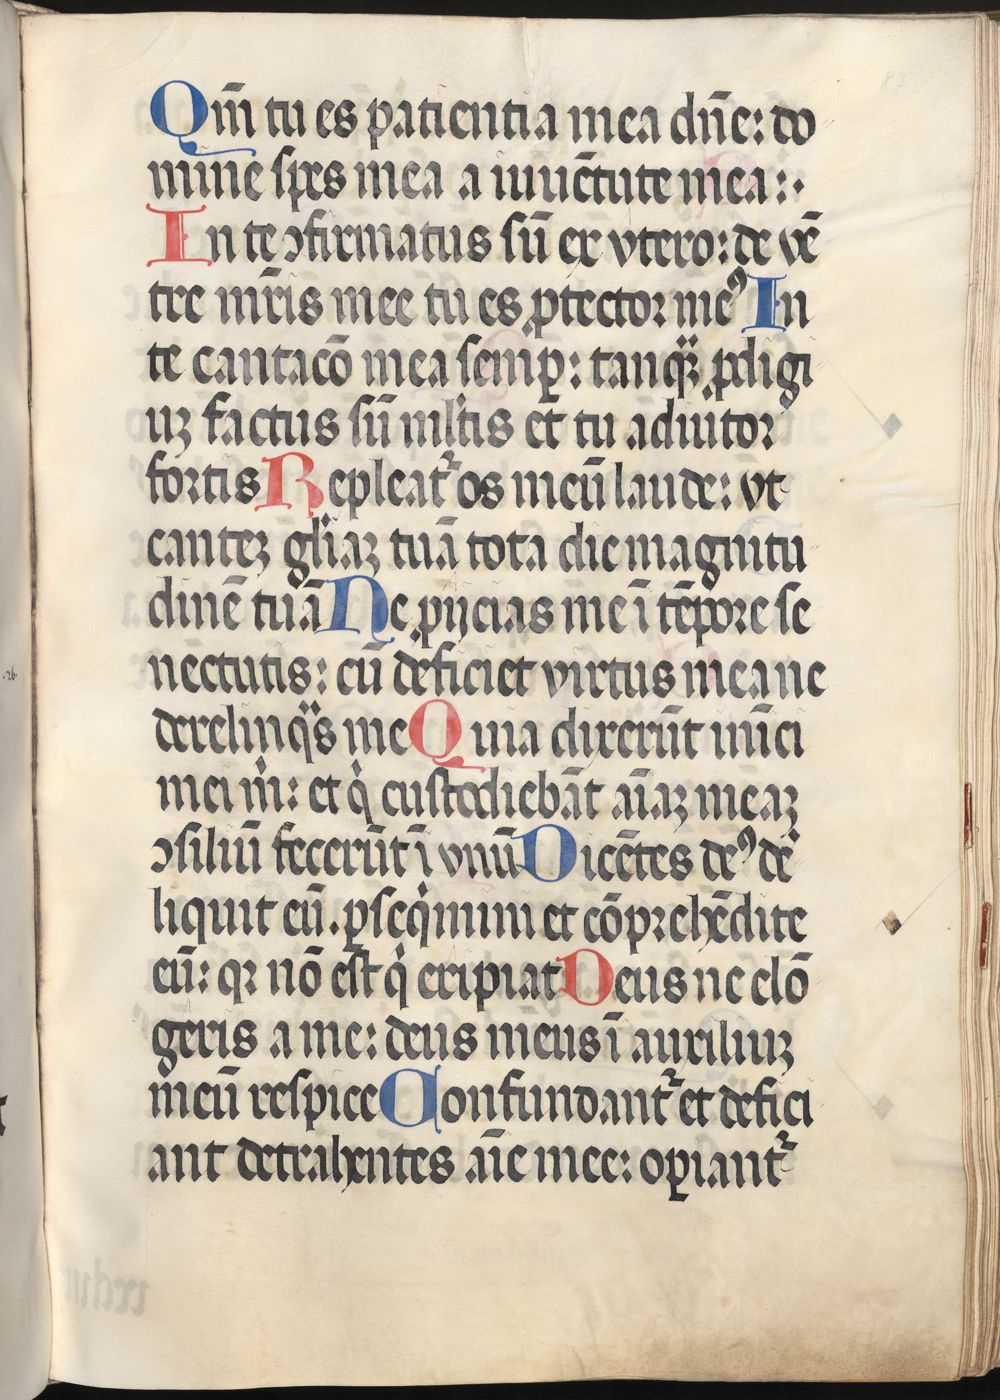 Qm̄ tu es patientia mea dn̄e: do
mine spes mea a iuuētute mea :·
In te ꝯfirmatus sū ex vtero: de vē
tre mr̄is mee tu es ꝓtector meꝰ In
te cantacō mea semꝑ: tanqꝫ ꝓdigi
uꝫ factus sū ml̄tis et tu adiutor
fortis Repleat᷑ os meū laude: vt
canteꝫ gl̄iaꝫ tuā tota die magnitu
dinē tuā Ne ꝓijcias me ī tēpore se
nectutis: cū deficiet virtus mea ne
derelinqͣs me Quia dixerūt inīci
mei mͥ: et qͥ custodiebāt aīaꝫ meaꝫ
ꝯsiliū fecerūt ī vnū Dicētes deꝰ de
liquit eū. ꝑseqͥmini et cōprehēdite
eū: qꝛ nō est qͥ eripiat Deus ne elō
geris a me: deus meus ī auxiliuꝫ
meū respice Confundant᷑ et defici
ant detrahentes aīe mee: oꝑiant᷑